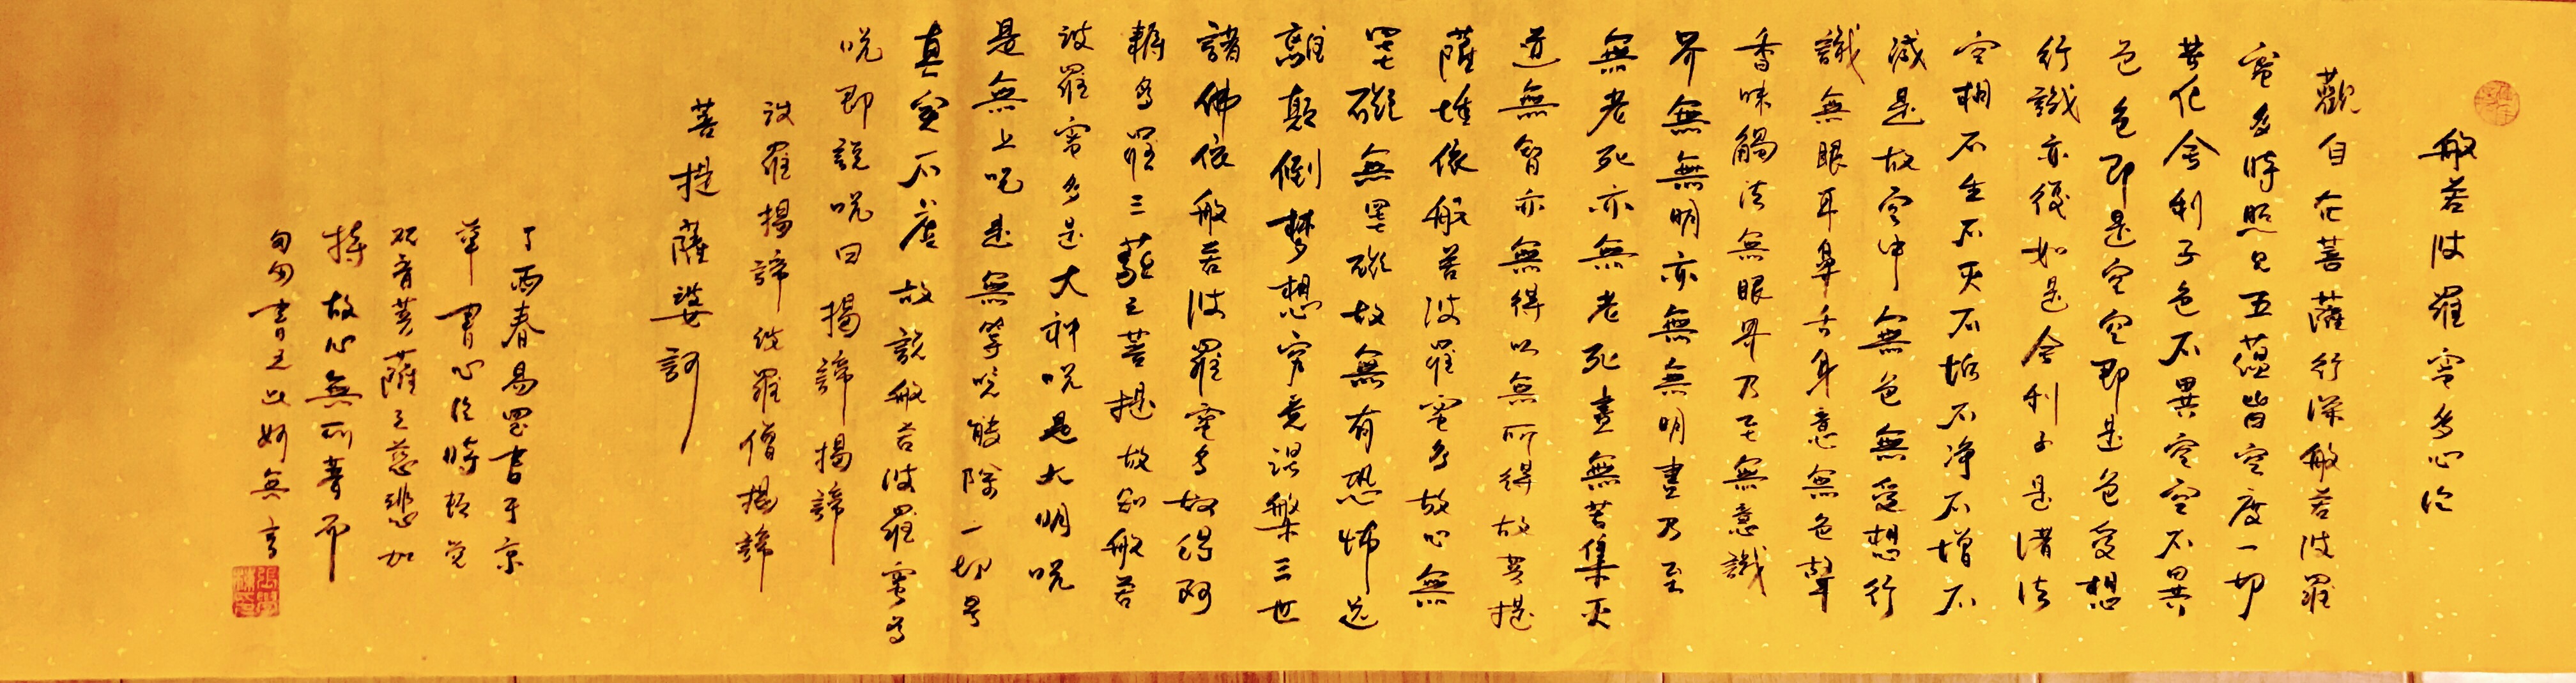 般若波羅蜜多心经
觀自在菩薩行深般若波羅
蜜多時照見五蘊皆空度一切
苦厄舍利子色不異空空不異
色色即是空空即是色受想
行識亦復如是舍利子是諸法
空相不生不灭不垢不净不增不
減是故空中無色無受想行
識無眼耳鼻舌身意無色聲
香味觸法無眼界乃至無意識
界無無明亦無無明盡乃至
無老死亦無老死盡無苦集灭
道無智亦無得以無所得故菩提
薩埵依般若波羅蜜多故心無
罣礙無罣礙故無有恐怖远
離顛倒夢想究竟涅槃三世
諸佛依般若波羅蜜多故得阿
耨多羅三藐三菩提故知般若
波羅蜜多是大神咒是大明咒
是無上咒是無等咒能除一切苦
真實不虛故說般若波羅蜜多
咒即說咒曰揭諦揭諦
波羅揭諦波羅僧揭諦
菩提薩婆訶
丁酉春易墨書于京
書心经時頓觉
观音菩薩之慈悲加
持故心無所著而
匆匆書之